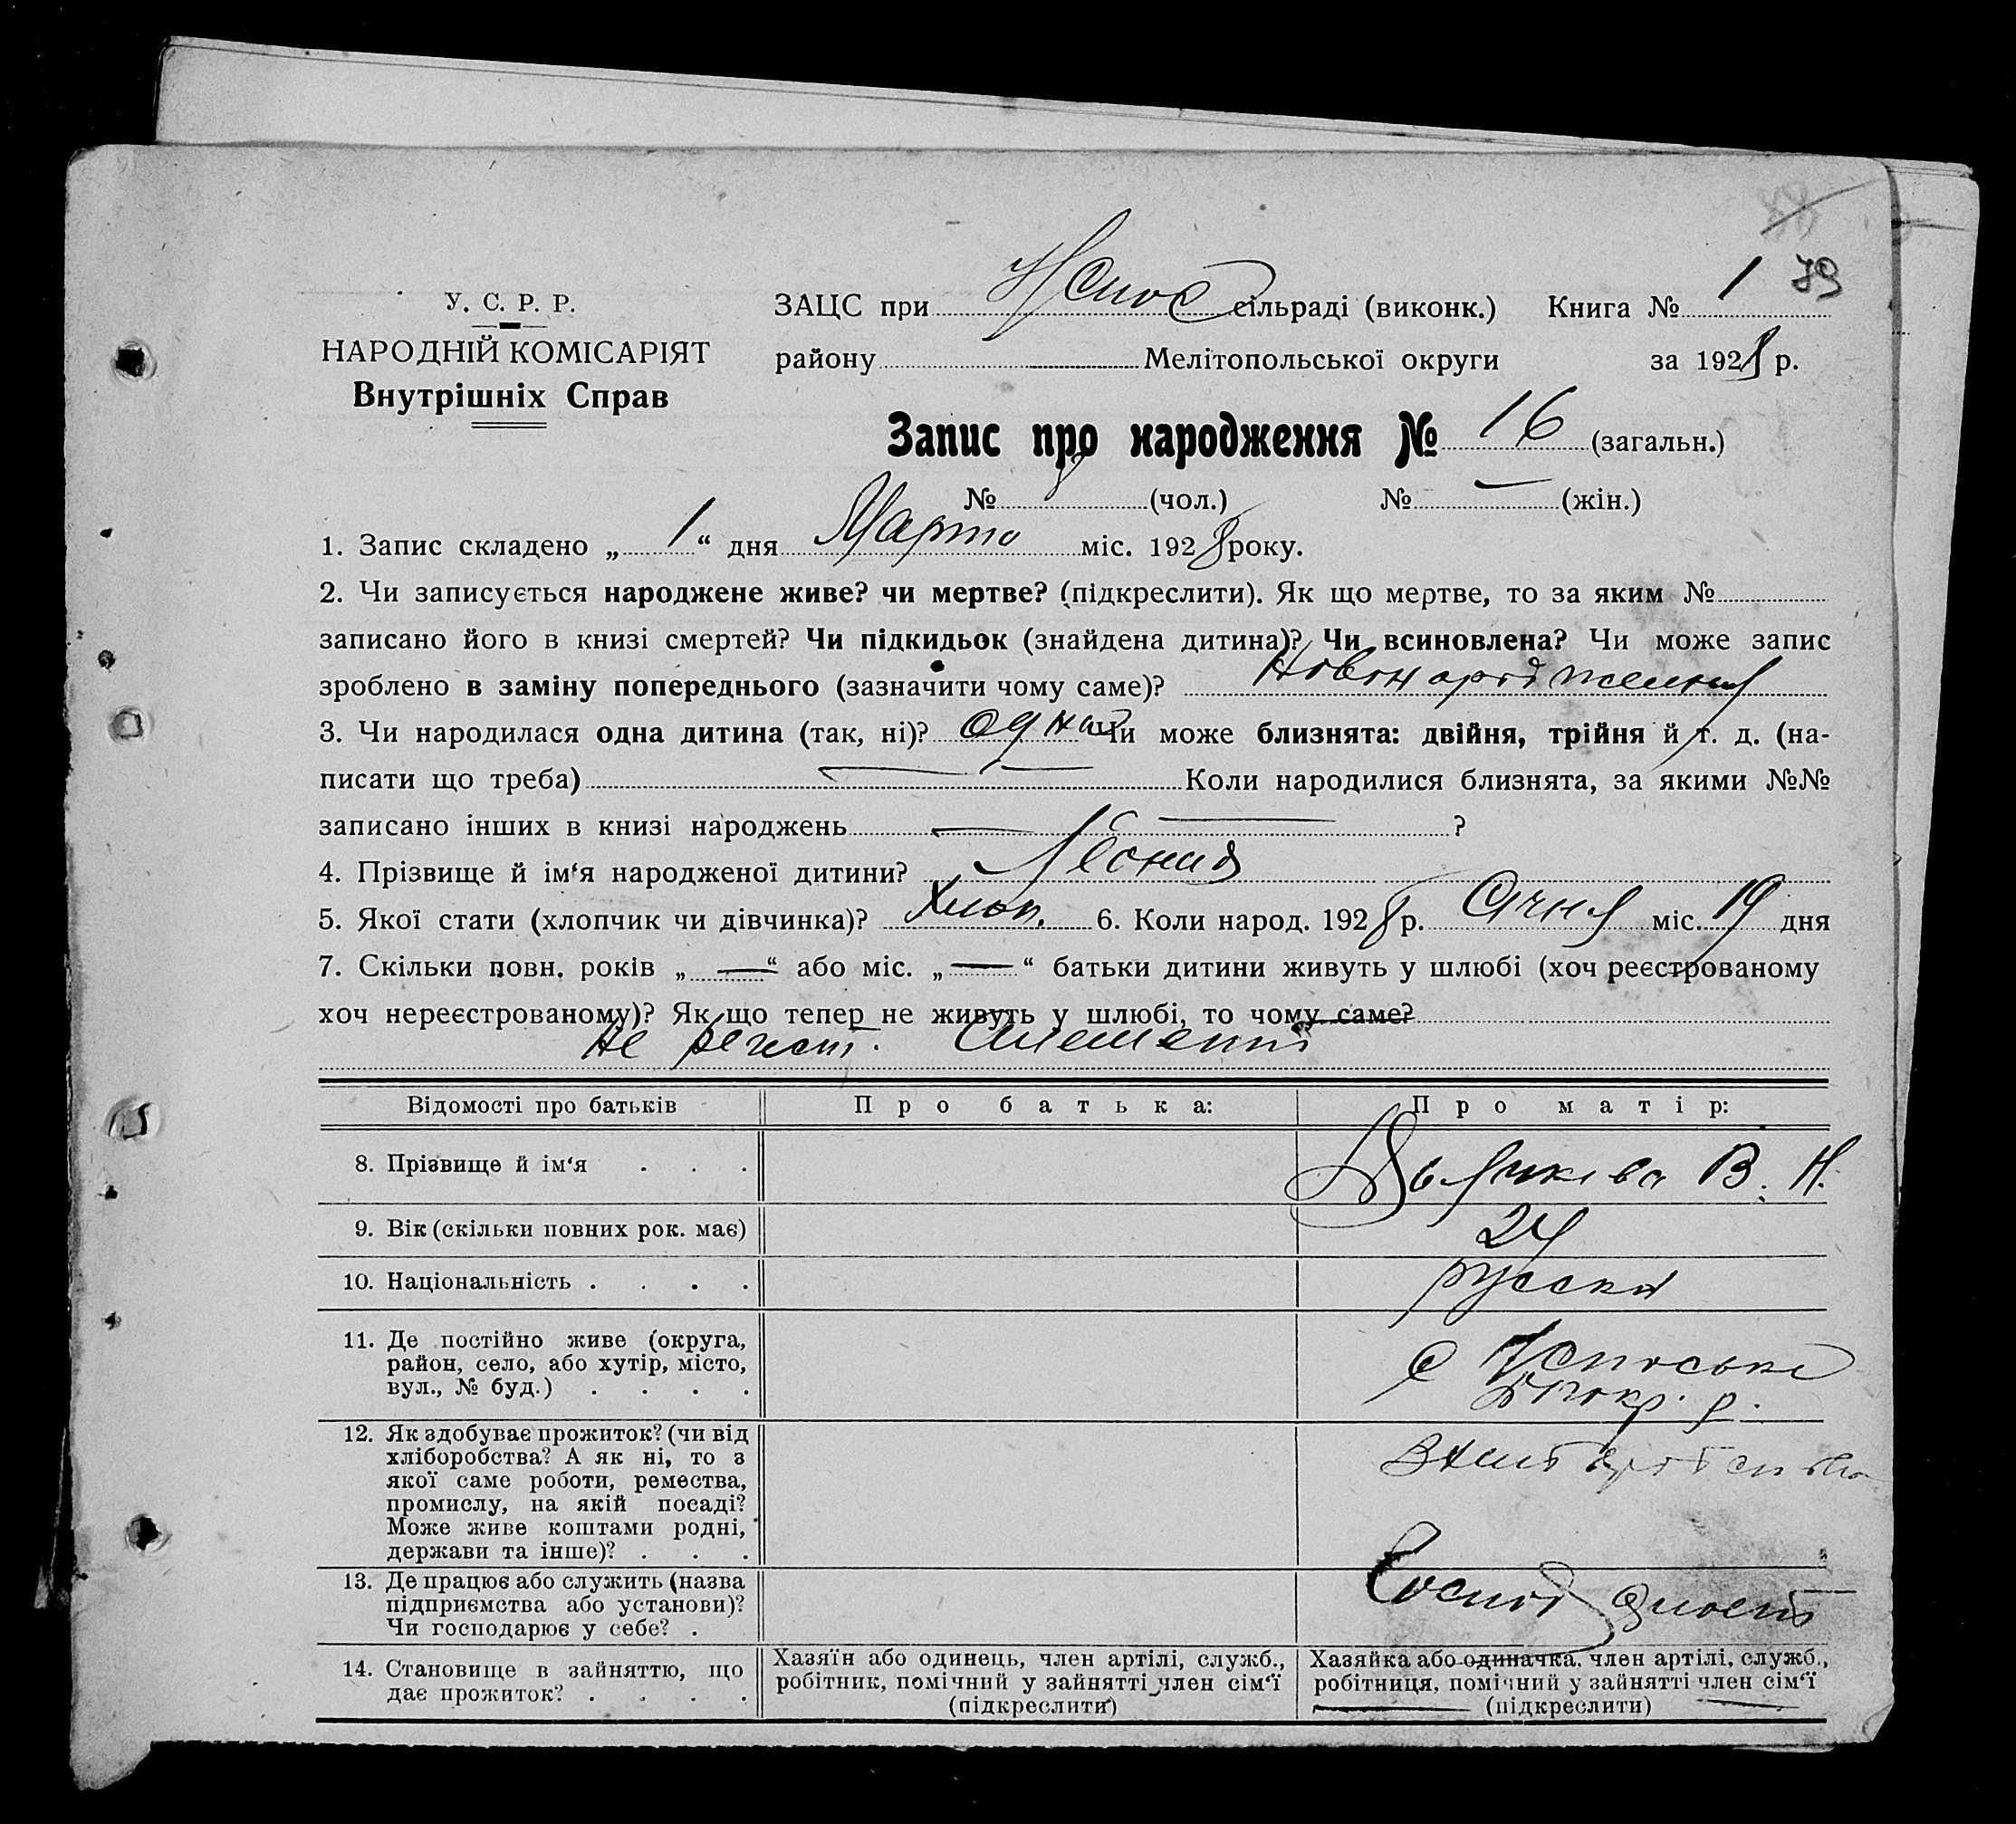 79
У. С. Р. Р.
НАРОДНІЙ КОМІСАРІЯТ
Внутрішніх Справ
ЗАЦС при сільраді (виконк.) Книга № 1
району Мелітопольської округи за 1928 р.
Запис про народження № 16 (загальн.)
№ (чол.) № — (жін.)
1. Запис складено „ 1 “ дня Марта міс. 1928 року.
2. Чи записується народжене живе? чи мертве? (підкреслити). Як що мертве, то за яким №
записано його в книзі смертей? Чи підкидьок (знайдена дитина)? Чи всиновлена? Чи може запис
зроблено в заміну попереднього (зазначити чому саме)? Новонародження
3. Чи народилася одна дитина (так, ні)? одна Чи може близнята: двійня, трійня й т. д. (на-
писати що треба) — — Коли народилися близнята, за якими №№
записано інших в книзі народжень — — ?
4. Прізвище й ім‘я народженої дитини? Леонид
5. Якої стати (хлопчик чи дівчинка)? Хлоп. 6. Коли народ. 1928 р. Січня міс. 19 дня
7. Скільки повн. років „ — “ або міс. „ — “ батьки дитини живуть у шлюбі (хоч реєстрованому
хоч нереєстрованому)? Як що тепер не живуть у шлюбі, то чому саме?
не регист.
Відомості про батьків Про батька: Про матір:
8. Прізвище й ім‘я . . . В. Н.
9. Вік (скільки повних рок. має) 24
10. Національність . . . . русска
11. Де постійно живе (округа,
район, село, або хутір, місто,
вул., № буд.) . . . . с
р.
12. Як здобуває прожиток? (чи від
хліборобства? А як ні, то з
якої саме роботи, ремества,
промислу, на якій посаді?
Може живе коштами родні,
держави та інше)? . . .
13. Де працює або служить (назва
підприємства або установи)?
Чи господарює у себе? .
14. Становище в зайняттю, що
дає прожиток? . . . .
Хазяїн або одинець, член артілі, служб.,
робітник, помічний у зайнятті член сім‘ї
(підкреслити)
Хазяйка або одиначка, член артілі, служб.,
робітниця, помічний у зайнятті член сім‘ї
(підкреслити)